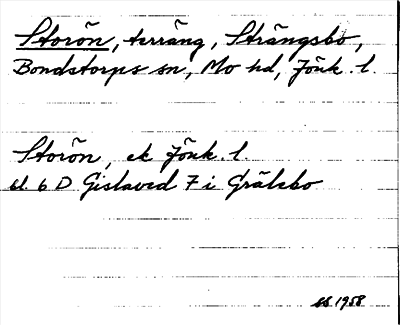 Storön, terräng, Strängsbo,
Bondstorps sn, Mo hd, Jönk. l.
Storön, ek Jönk. l.
bl. 6 D Gislaved 7 i Grälebo
1958